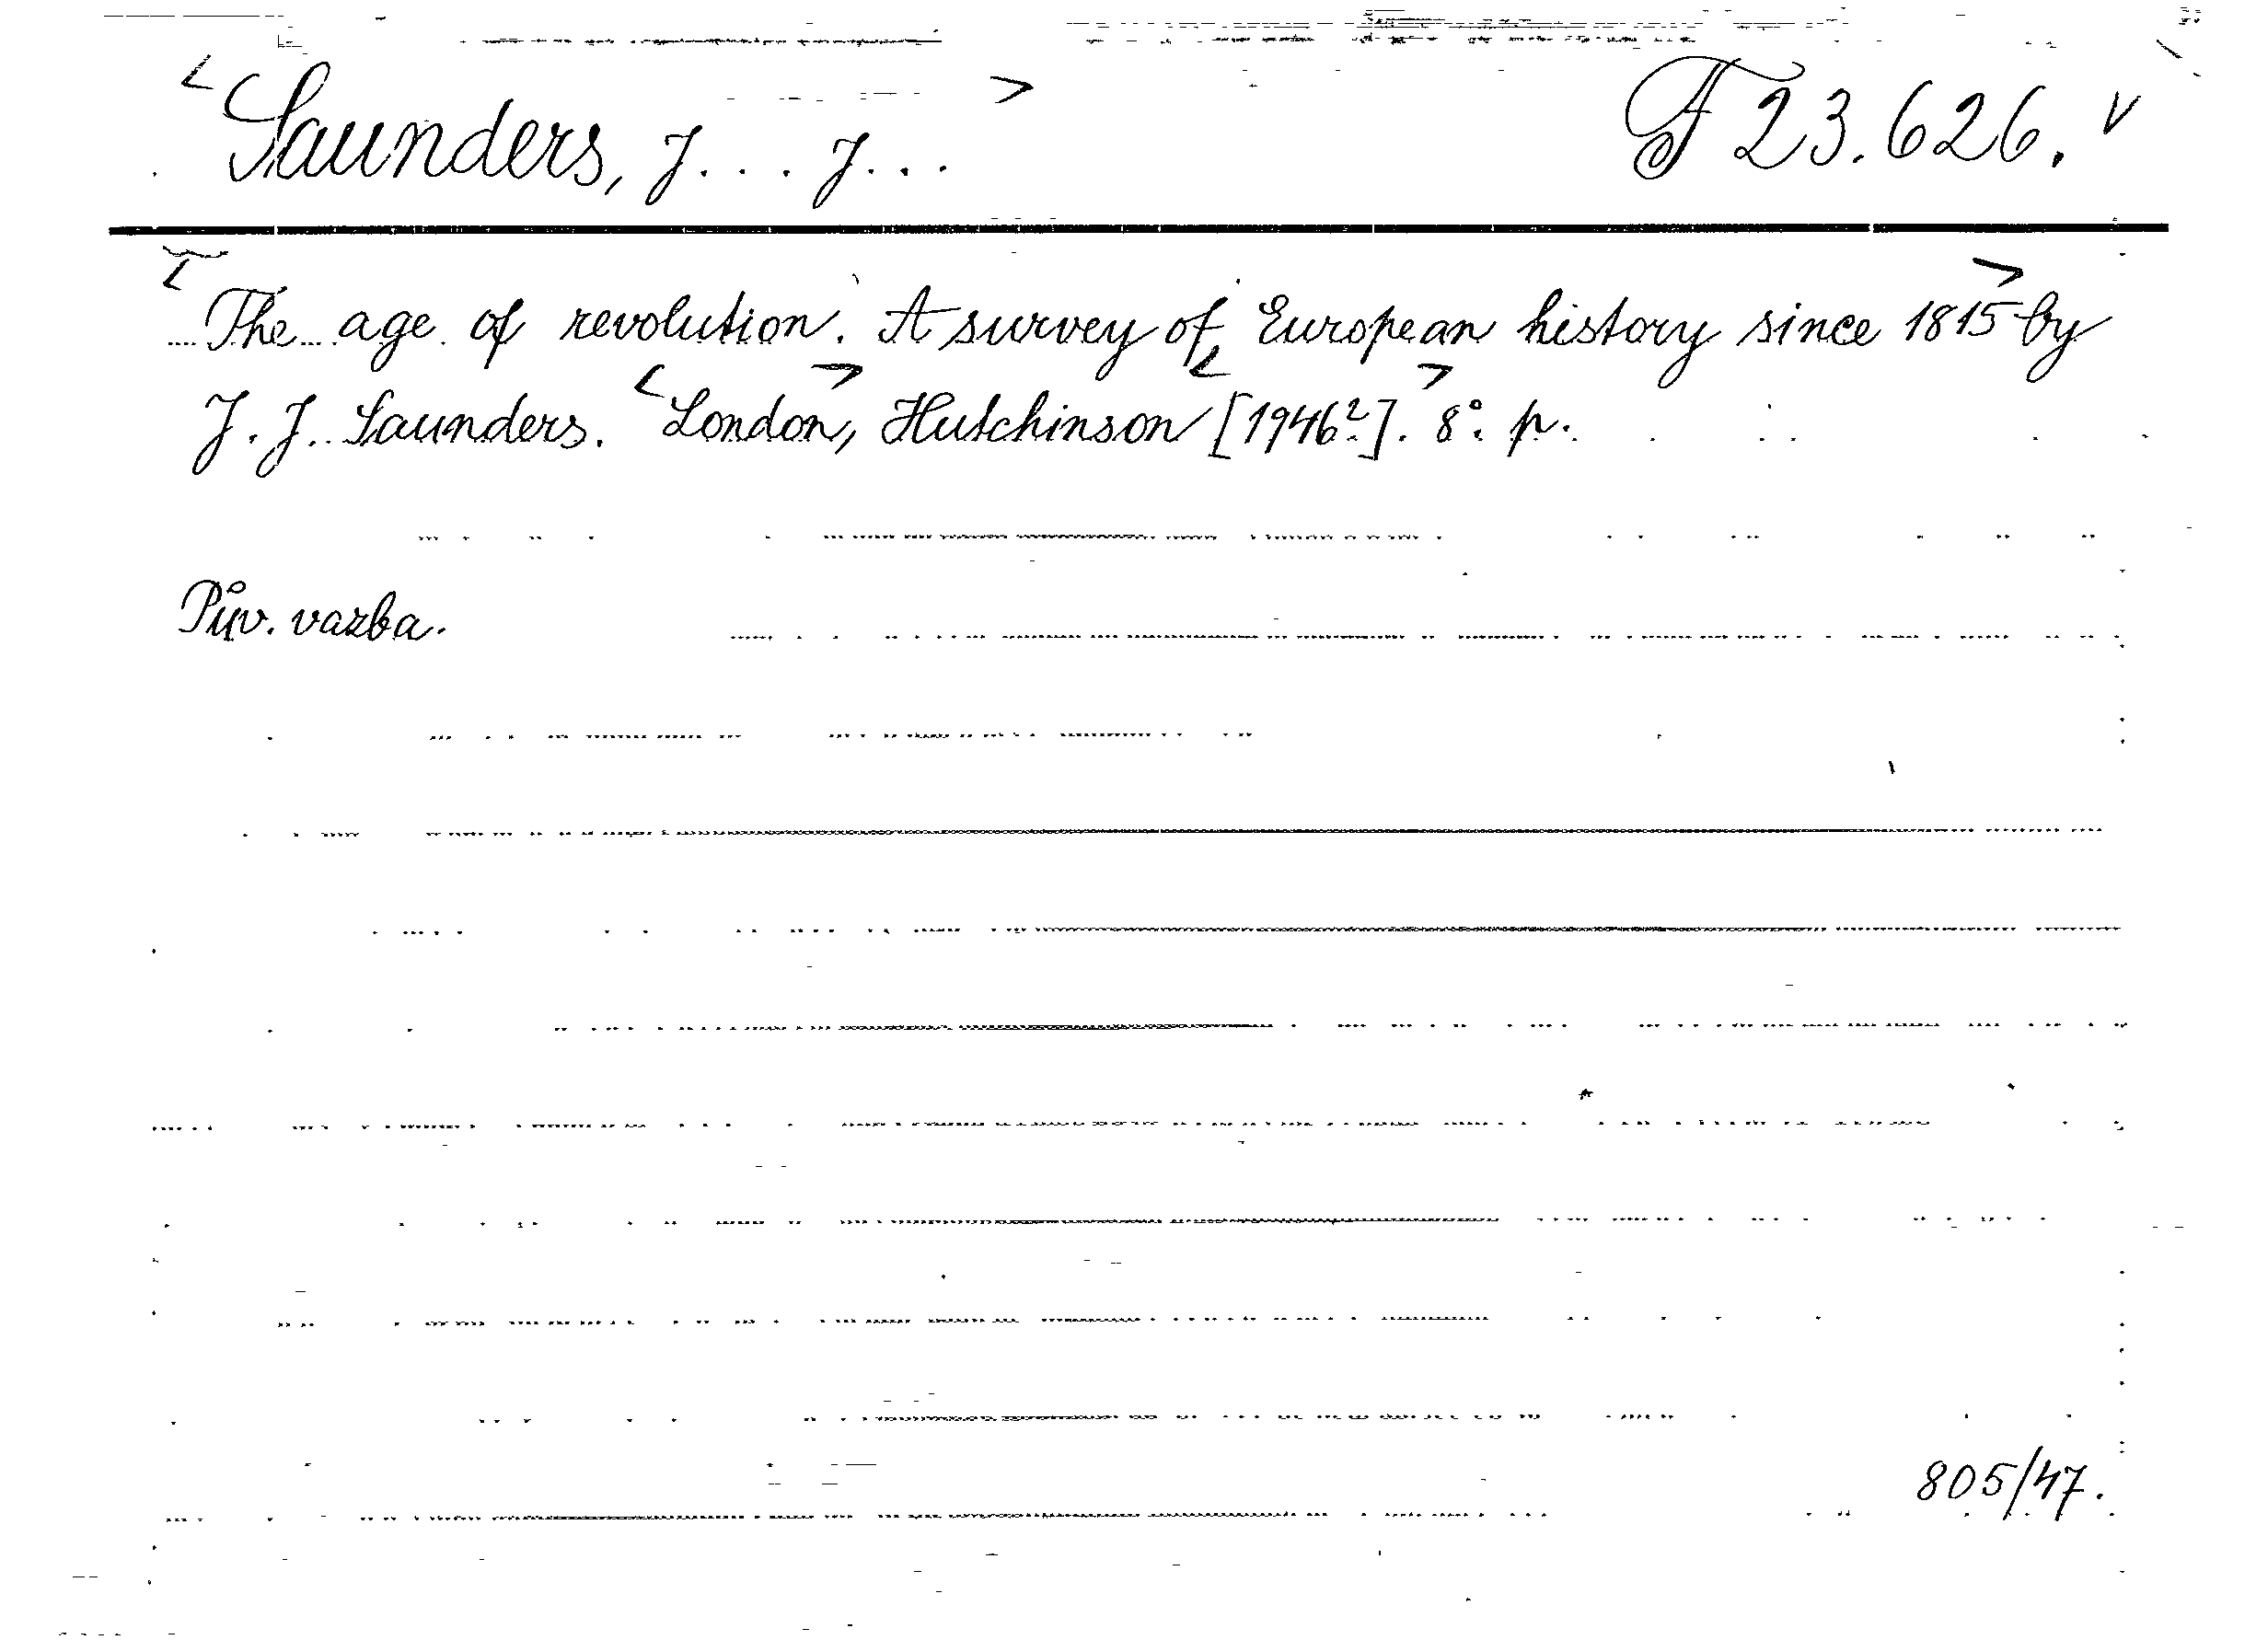 <Saunders, J... J...> F 23.626. v
<The age of revolution. A survey of European history since 1815> by
J. J. Saunders. <London>, Hutchinson <[1946?]>. 8°. p.
Pův. vazba.
805/47.